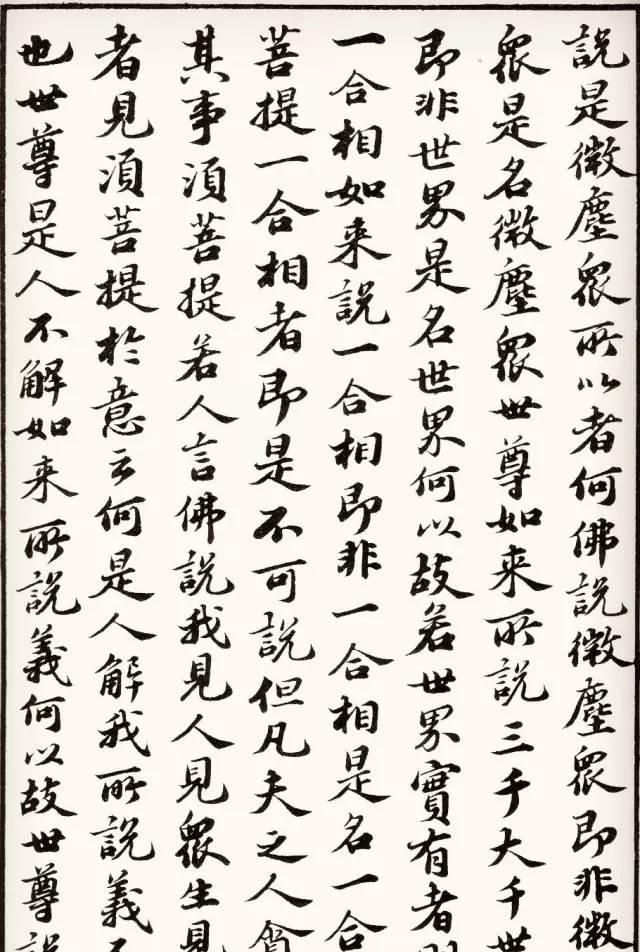 說是微塵眾所以者何佛說微塵眾即非微
眾是名微塵眾世尊如来所說三千大千世
即非世界是名世界何以故若世界實有者
一合相如来說一合相即非一合相是名一合
菩提一合相者即是不可說但凡夫之人貪
其事須菩提若人言佛說我見人見眾生見
者見須菩提於意云何是人解我所說義不
也世尊是人不解如来所說義何以故世尊說